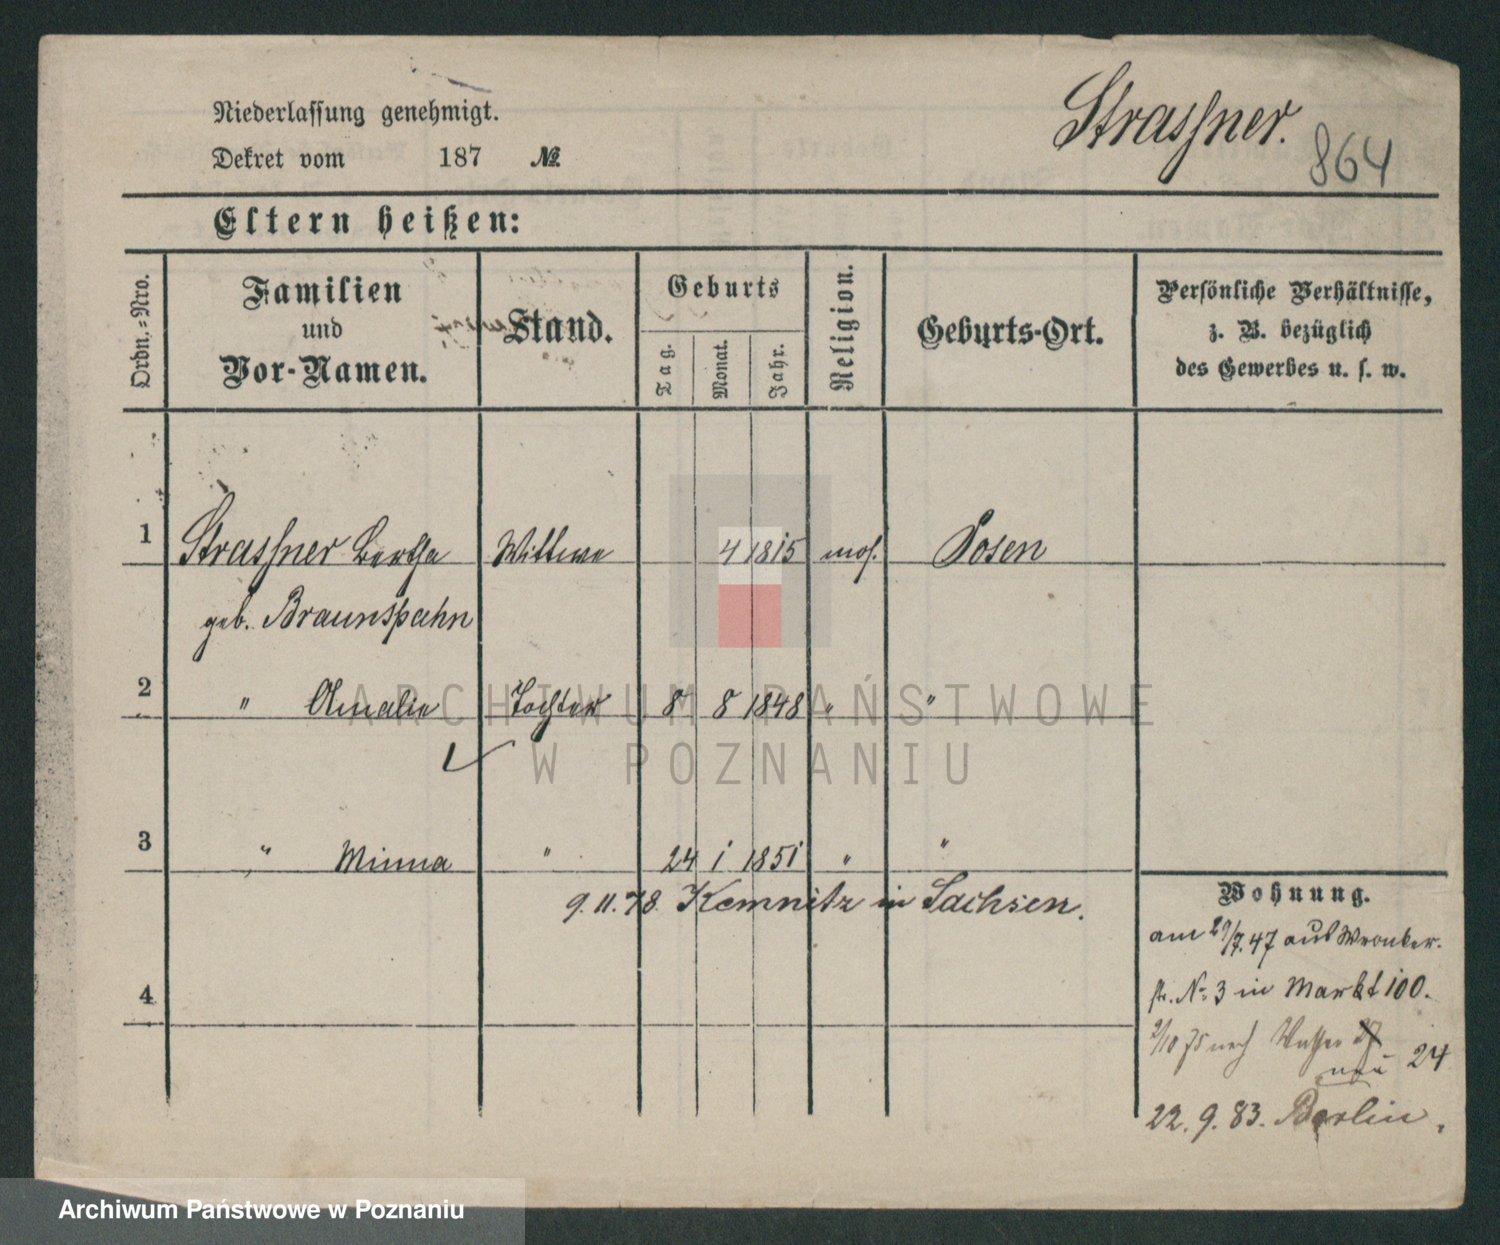 Niederlassung genehmigt.
Strassner.
Dekret vom 187 №
864
Eltern heißen:
Ordn.=Nro.
Familien
und
Vor-Namen.
Stand.
Geburts
Tag.
Monat.
Jahr.
Religion.
Geburts-Ort.
Persönliche Verhältnisse,
z. B. bezüglich
des Gewerbes u. s. w.
1 Strassner Bertha Wittwe 4 1815 mos. Posen
geb. Braunspahn
2 " Amalie Tochter 8 8 1848 " "
ARCHIWUM PAŃSTWOWE
W POZNANIU
3 " Minna " 24 1 1851 " "
9.11.78 Kemnitz in Sachsen.
Wohnung.
am 29/7.47 aus Wronker-
str. No. 3 in Markt 100.
4
2/10 75 nach Wasser
neu 24
22. 9. 83. Berlin.
Archiwum Państwowe w Poznaniu